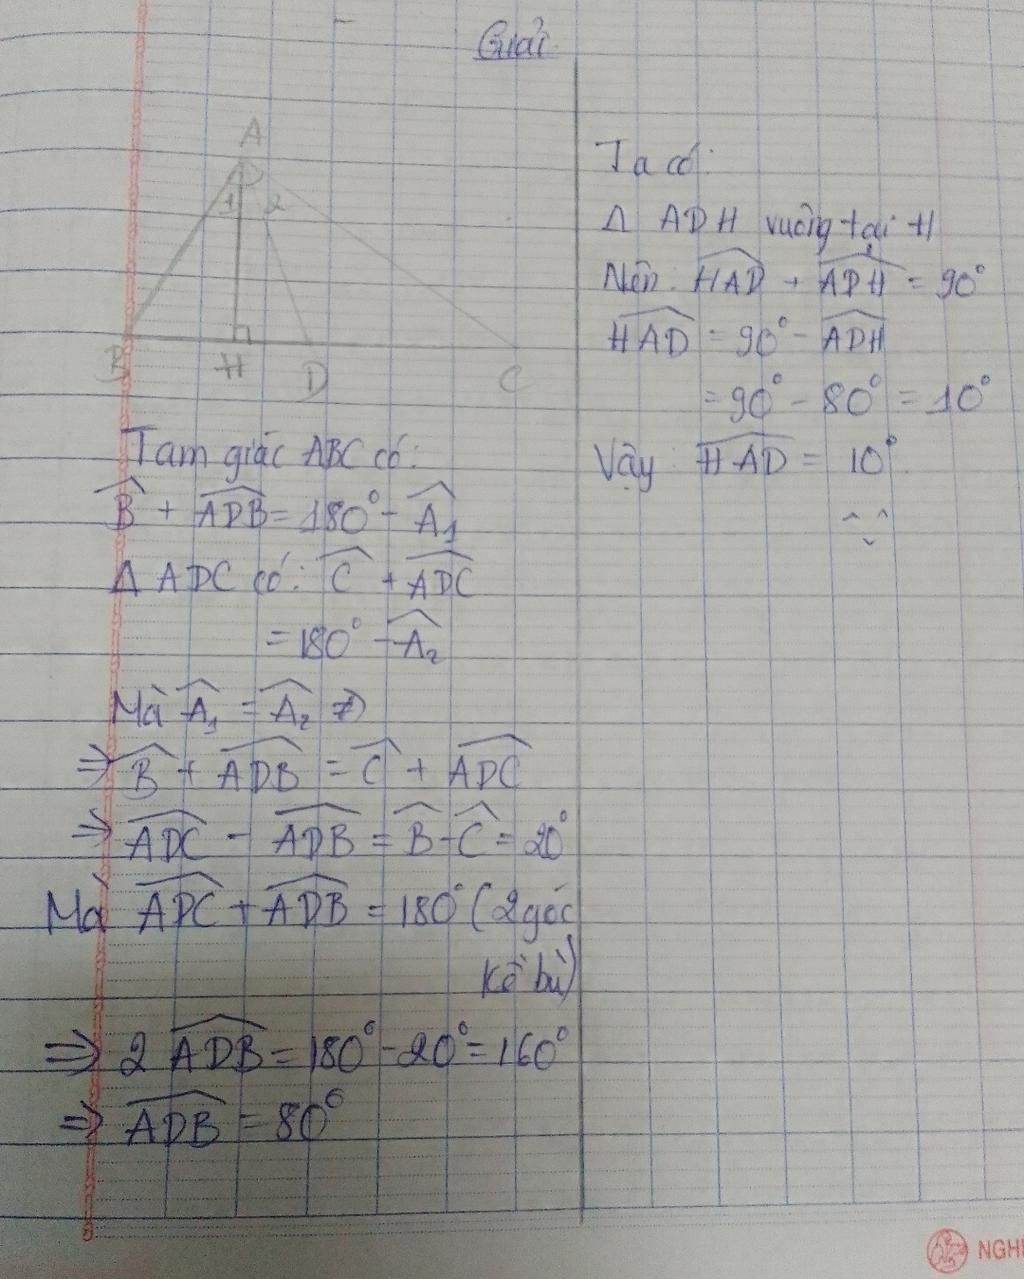 Giải
A
1 2
B H D C
Tam giác ABC có:
B̂ + ADB̂ = 180° - Â₁
Δ ADC có: Ĉ + ADĈ
= 180° - Â₂
Mà Â₁ = Â₂
⇒ B̂ + ADB̂ = Ĉ + ADĈ
⇒ ADĈ - ADB̂ = B̂ - Ĉ = 20°
Mà ADĈ + ADB̂ = 180° (2 góc
kề bù)
⇒ 2 ADB̂ = 180° - 20° = 160°
⇒ ADB̂ = 80°
Ta có:
Δ ADH vuông tại H
Nên: HAD̂ + ADĤ = 90°
HAD̂ = 90° - ADĤ
= 90° - 80° = 10°
Vậy: HAD̂ = 10°.
NGH